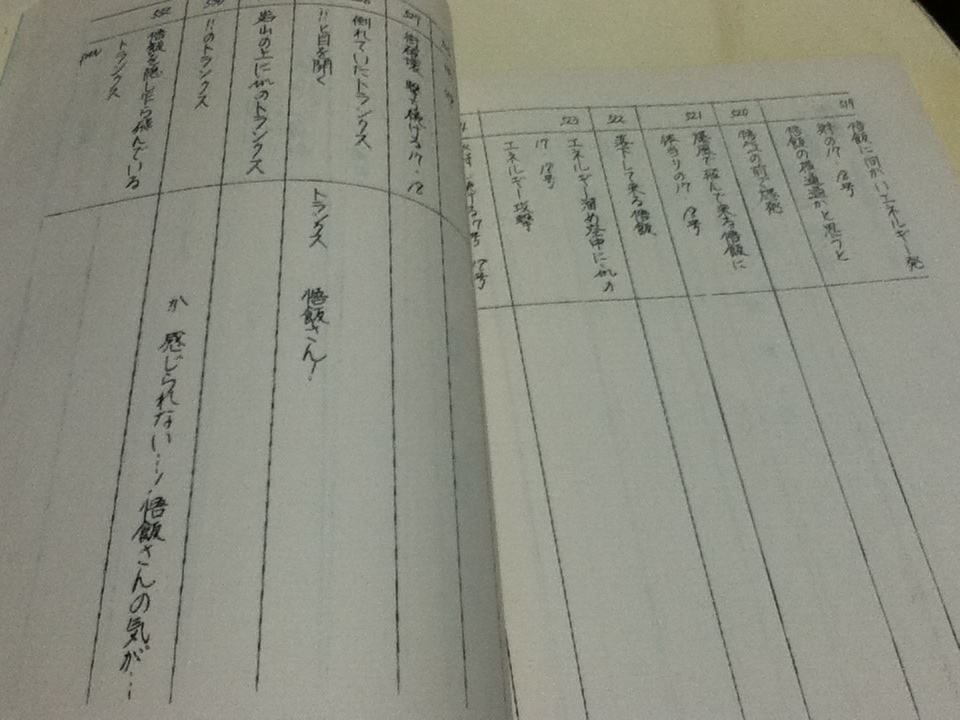 519
悟飯に向かいエネルギー発
射の17・18号
悟飯の横通過かと思うと
520
悟飯の前で爆発
521
爆風で飛んで来る悟飯に
体当りの17 18号
522
落下して来る悟飯
523
エネルギー溜め空中にinの
17 18号
エネルギー攻撃
17号 18号
527
街破壊、撃ち続ける17・18
倒れていたトランクス、
!!と目を開く
トランクス 悟飯さん!
岩山の上にinのトランクス
!!のトランクス
532
悟飯を隠したら佇んでいる
トランクス
PAN
か 感じられない…!悟飯さんの気が…